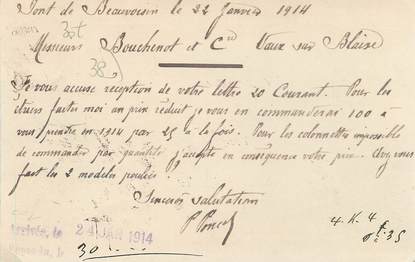 Pont de Beauvoisin le 22 Janvier 1914
Messieurs Bouchenot et Cie Vaux sur Blaise
Je vous accuse reception de votre lettre 20 Courant. Pour les
faites moi un prix réduit je vous en commanderai 100 à
vous prendre en 1914 par 25 à la fois. Pour les colonnettes impossible
de commander par quantité j'accepte en consequence votre prix. Avez vous
fait les 2 modeles
Sincères salutation
P Poncet
24 JAN 1914
30
4. K. 4